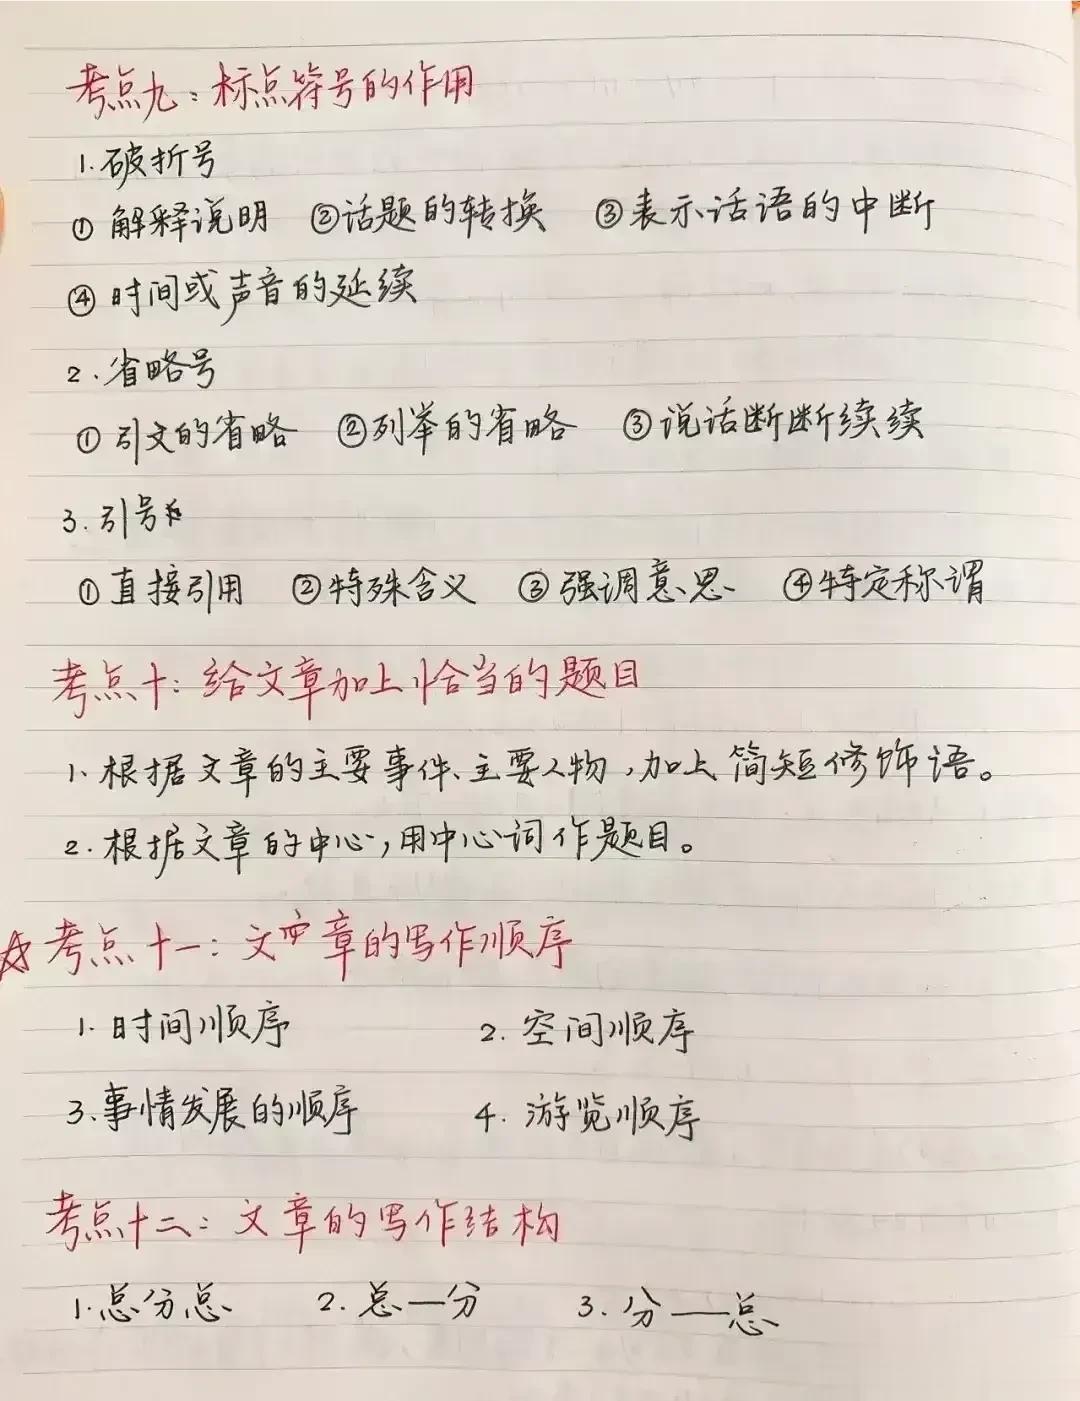 考点九：标点符号的作用
1.破折号
①解释说明 ②话题的转换 ③表示话语的中断
④时间或声音的延续
2.省略号
①引文的省略 ②列举的省略 ③说话断断续续
3.引号
①直接引用 ②特殊含义 ③强调意思 ④特定称谓
考点十：给文章加上恰当的题目
1、根据文章的主要事件、主要人物，加上简短修饰语。
2.根据文章的中心，用中心词作题目。
☆考点十一：文章的写作顺序
1.时间顺序 2.空间顺序
3.事情发展的顺序 4.游览顺序
考点十二：文章的写作结构
1.总分总 2.总—分 3.分——总